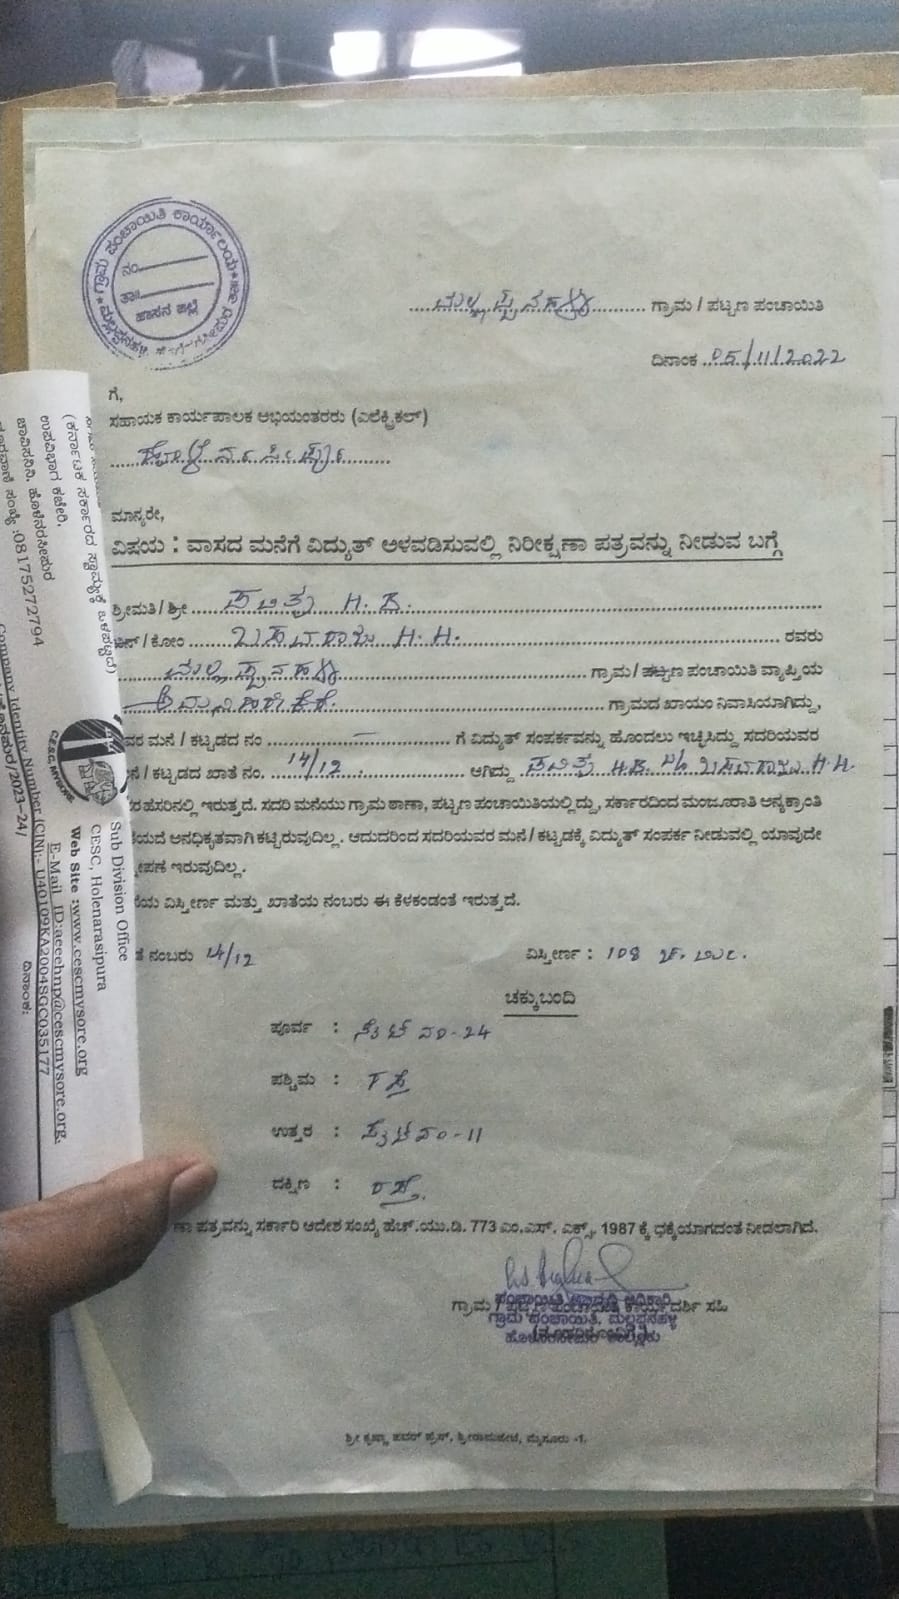 ಗ್ರಾಮ ಪಂಚಾಯಿತಿ ಕಾರ್ಯಾಲಯ
ನಂ
ತಾ॥
ಹಾಸನ ಜಿಲ್ಲೆ
ಮಲ್ಲಪ್ಪನಹಳ್ಳಿ ಗ್ರಾಮ / ಪಟ್ಟಣ ಪಂಚಾಯಿತಿ
ದಿನಾಂಕ 05/11/2022
ಗೆ,
ಸಹಾಯಕ ಕಾರ್ಯಪಾಲಕ ಅಭಿಯಂತರರು (ಎಲೆಕ್ಟ್ರಿಕಲ್)
ಹೊಳೆನರಸೀಪುರ
ಮಾನ್ಯರೇ,
ವಿಷಯ : ವಾಸದ ಮನೆಗೆ ವಿದ್ಯುತ್ ಅಳವಡಿಸುವಲ್ಲಿ ನಿರೀಕ್ಷಣಾ ಪತ್ರವನ್ನು ನೀಡುವ ಬಗ್ಗೆ
ಶ್ರೀಮತಿ / ಶ್ರೀ ಪವಿತ್ರ H. B.
ಬಿನ್ / ಕೋಂ ಬಸವರಾಜು H. H. ರವರು
ಮಲ್ಲಪ್ಪನಹಳ್ಳಿ ಗ್ರಾಮ / ಪಟ್ಟಣ ಪಂಚಾಯಿತಿ ವ್ಯಾಪ್ತಿಯ
ಗ್ರಾಮದ ಖಾಯಂ ನಿವಾಸಿಯಾಗಿದ್ದು,
ವರ ಮನೆ / ಕಟ್ಟಡದ ನಂ — ಗೆ ವಿದ್ಯುತ್ ಸಂಪರ್ಕವನ್ನು ಹೊಂದಲು ಇಚ್ಛಿಸಿದ್ದು ಸದರಿಯವರ
ನೆ / ಕಟ್ಟಡದ ಖಾತೆ ನಂ. 14/12 ಆಗಿದ್ದು ಪವಿತ್ರ H.B. W/o ಬಸವರಾಜು H.H.
ರ ಹೆಸರಿನಲ್ಲಿ ಇರುತ್ತದೆ. ಸದರಿ ಮನೆಯು ಗ್ರಾಮ ಠಾಣಾ, ಪಟ್ಟಣ ಪಂಚಾಯಿತಿಯಲ್ಲಿದ್ದು, ಸರ್ಕಾರದಿಂದ ಮಂಜೂರಾತಿ ಅನ್ಯಕ್ರಾಂತಿ
ಯದೆ ಅನಧಿಕೃತವಾಗಿ ಕಟ್ಟಿರುವುದಿಲ್ಲ. ಆದುದರಿಂದ ಸದರಿಯವರ ಮನೆ / ಕಟ್ಟಡಕ್ಕೆ ವಿದ್ಯುತ್ ಸಂಪರ್ಕ ನೀಡುವಲ್ಲಿ ಯಾವುದೇ
ಪಣೆ ಇರುವುದಿಲ್ಲ.
ಯ ವಿಸ್ತೀರ್ಣ ಮತ್ತು ಖಾತೆಯ ನಂಬರು ಈ ಕೆಳಕಂಡಂತೆ ಇರುತ್ತದೆ.
ನಂಬರು 14/12 ವಿಸ್ತೀರ್ಣ : 108 ಚ. ಮೀ.
ಚಕ್ಕುಬಂದಿ
ಪೂರ್ವ : ಸೈಟ್ ನಂ-24
ಪಶ್ಚಿಮ : ರಸ್ತೆ
ಉತ್ತರ : ಸೈಟ್ ನಂ-11
ದಕ್ಷಿಣ : ರಸ್ತೆ.
ಣಾ ಪತ್ರವನ್ನು ಸರ್ಕಾರಿ ಆದೇಶ ಸಂಖ್ಯೆ ಹೆಚ್.ಯು.ಡಿ. 773 ಎಂ.ಎಸ್. ಎಕ್ಸ್. 1987 ಕ್ಕೆ ಧಕ್ಕೆಯಾಗದಂತೆ ನೀಡಲಾಗಿದೆ.
ಗ್ರಾಮ / ಪಟ್ಟಣ ಪಂಚಾಯಿತಿ ಕಾರ್ಯದರ್ಶಿ ಸಹಿ
ಪಂಚಾಯಿತಿ ಅಭಿವೃದ್ಧಿ ಅಧಿಕಾರಿ
ಗ್ರಾಮ ಪಂಚಾಯಿತಿ, ಮಲ್ಲಪ್ಪನಹಳ್ಳಿ
ಹೊಳೆನರಸೀಪುರ ತಾಲ್ಲೂಕು
ಶ್ರೀ ಕೃಷ್ಣಾ ಪವರ್ ಪ್ರೆಸ್, ಶ್ರೀರಾಮಪೇಟೆ, ಮೈಸೂರು -1.
(ಕರ್ನಾಟಕ ಸರ್ಕಾರದ ಸ್ವಾಮ್ಯಕ್ಕೆ ಒಳಪಟ್ಟಿದೆ)
ಉಪವಿಭಾಗ ಕಚೇರಿ.
ಚಾವಿಸನಿನಿ. ಹೊಳೆನರಸೀಪುರ
ಸಂಖ್ಯೆ :08175272794
CESC, MYSORE
Sub Division Office
CESC, Holenarasipura
Web Site :www.cescmysore.org
E-Mail ID:aeeehnp@cescmysore.org.
Company Identity Number (CIN):- U40109KA2004SGC035177
/2023-24/
ದಿನಾಂಕ: